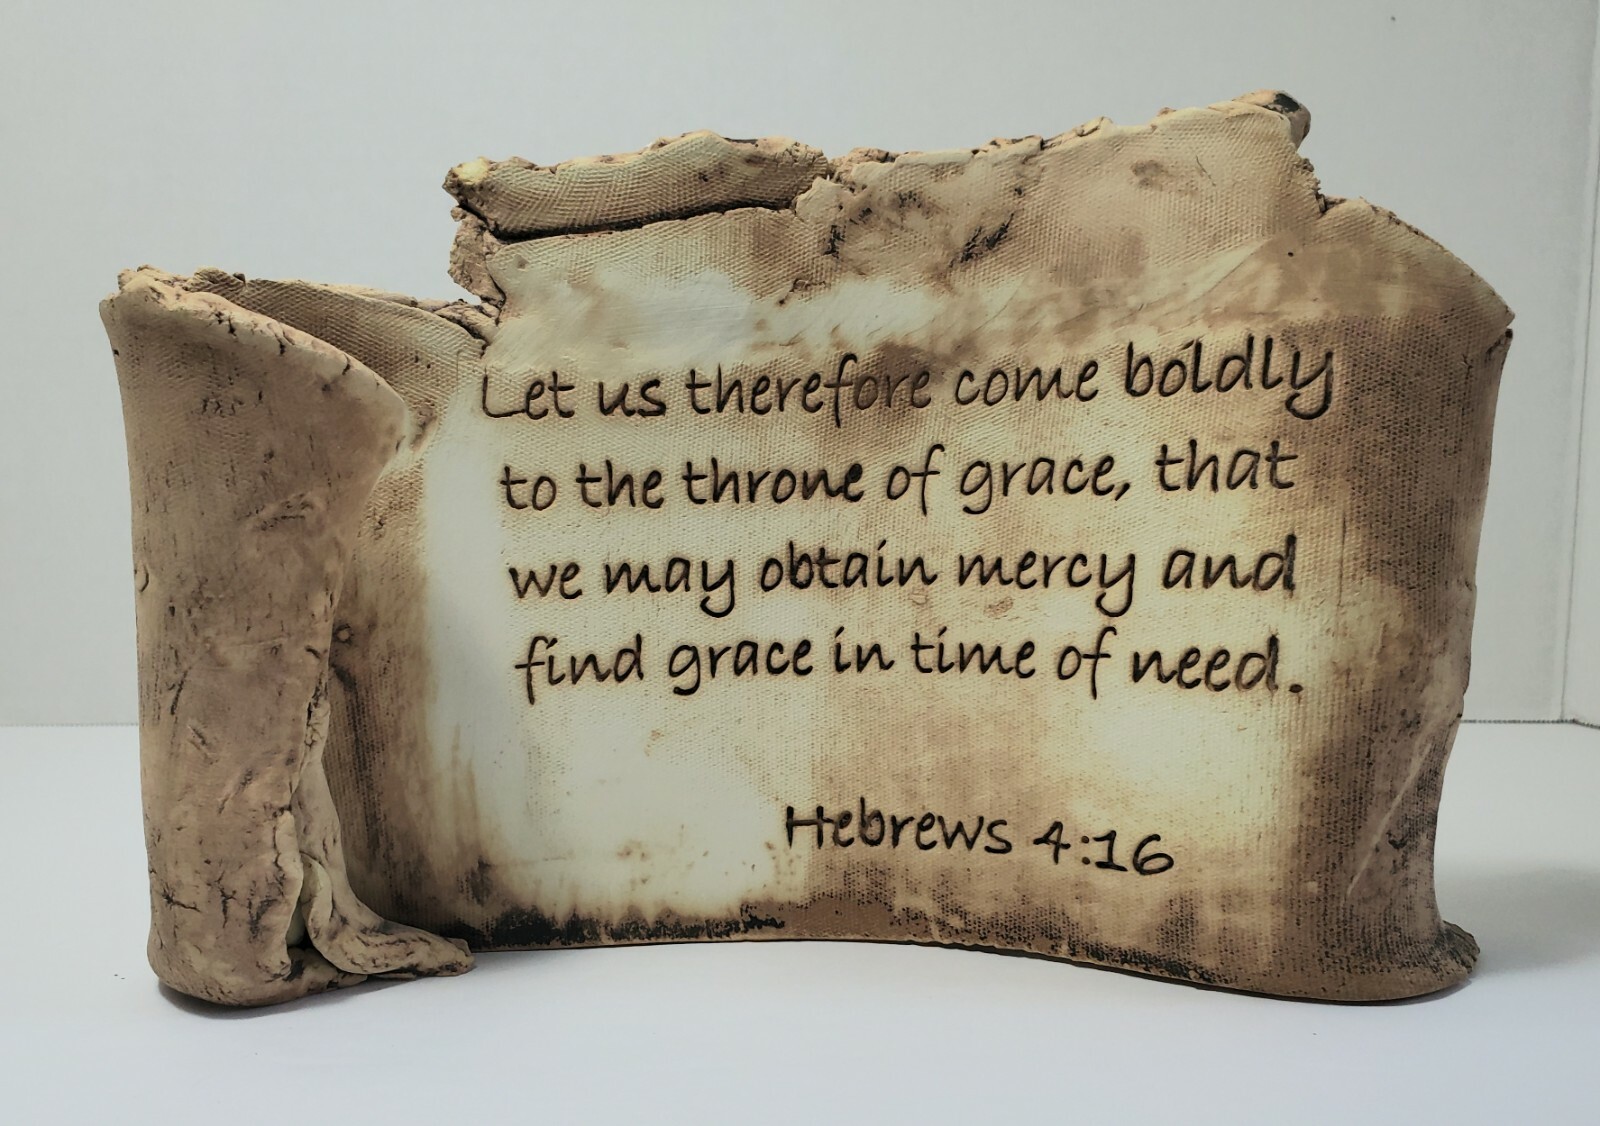 Let us therefore come boldly
to the throne of grace, that
we may obtain mercy and
find grace in time of need.
Hebrews 4:16